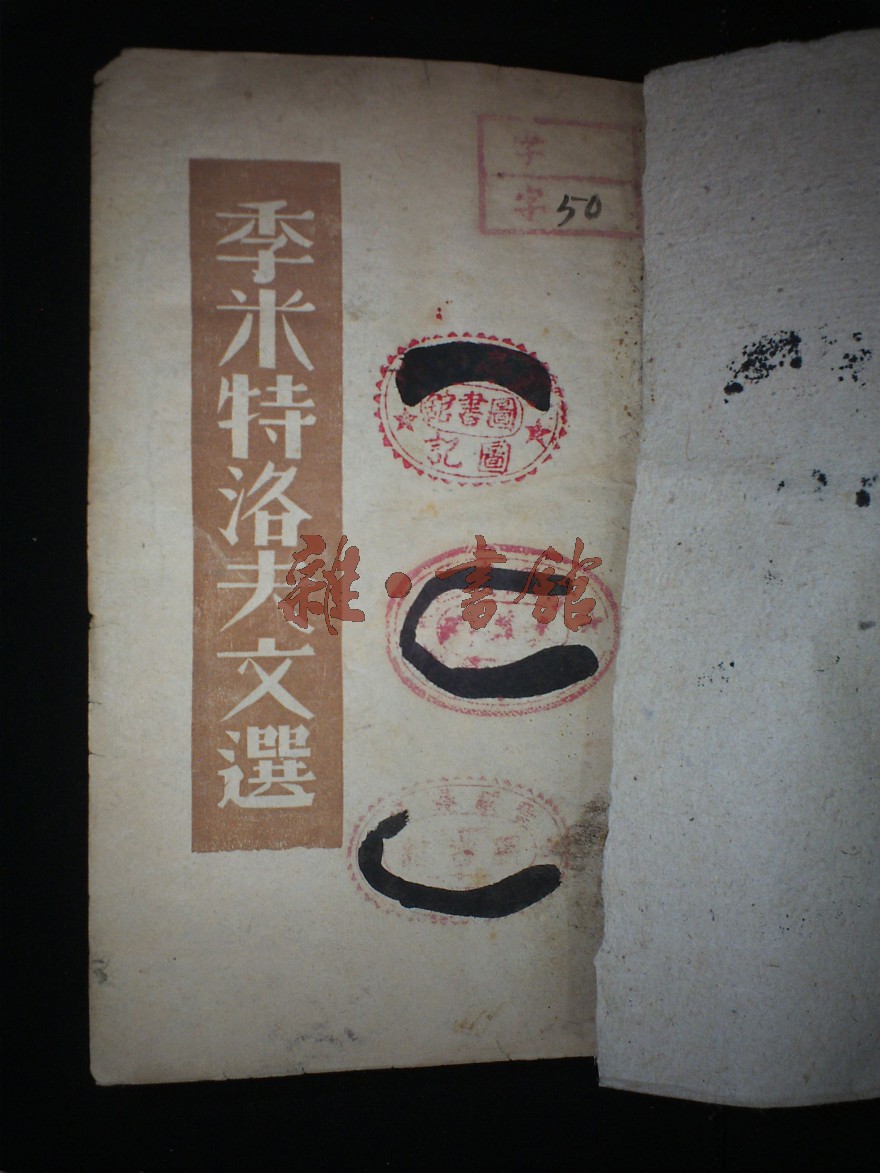 季米特洛夫文選
字
字 50
圖書館
圖記
雜·書館